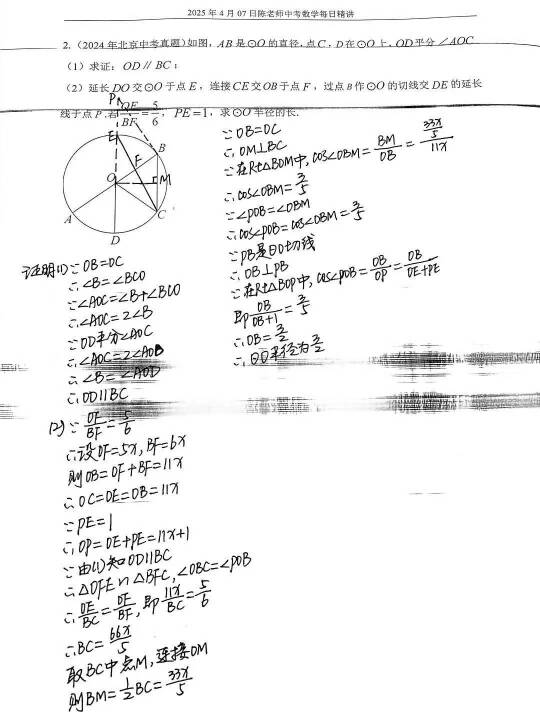 2025 年 4 月 07 日陈老师中考数学每日精讲
2.（2024 年北京中考真题）如图，AB 是⊙O 的直径，点 C，D 在⊙O 上，OD 平分∠AOC
（1）求证：OD∥BC；
（2）延长 DO 交⊙O 于点 E，连接 CE 交 OB 于点 F，过点 B 作⊙O 的切线交 DE 的延长
线于点 P. 若 OF/BF = 5/6，PE=1，求⊙O 半径的长.
P
E
B
F
O
M
A
C
D
证明(1)∵OB=OC
∴∠B=∠BCO
∵∠AOC=∠B+∠BCO
∴∠AOC=2∠B
∵OD平分∠AOC
∴∠AOC=2∠AOD
∴∠B=∠AOD
∴OD∥BC
(2)∵OF/BF=5/6
∴设OF=5x,BF=6x
则OB=OF+BF=11x
∴OC=OE=OB=11x
∵PE=1
∴OP=OE+PE=11x+1
∵由(1)知OD∥BC
∴△OFE∽△BFC,∠OBC=∠POB
∴OE/BC=OF/BF,即11x/BC=5/6
∴BC=66x/5
取BC中点M,连接OM
则BM=1/2BC=33x/5
∵OB=OC
∴OM⊥BC
∵在Rt△BOM中,cos∠OBM=BM/OB=(33x/5)/11x
∴cos∠OBM=3/5
∵∠POB=∠OBM
∴cos∠POB=cos∠OBM=3/5
∵PB是⊙O切线
∴OB⊥PB
∵在Rt△BOP中,cos∠POB=OB/OP=OB/(OE+PE)
即OB/(OB+1)=3/5
∴OB=3/2
∴⊙O半径为3/2